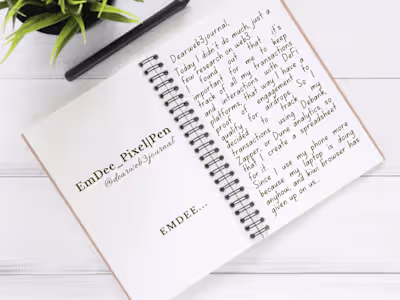 EmDee_Pixel|Pen
@dearweb3journal
EMDEE...
Dearweb3journal.
Today I didn't do much, just a
few research on web3.
I found out that it's
important for me to keep
track of all my transactions
and interactions with DeFi
platforms, that way I have a
proof of engagement to
qualify for airdrops. So I
decided to track my
transactions using Debank,
Zapper, or Dune analytics, so
that I create a spreadsheet
for it.
Since I use my phone more
because my laptop is doing
anyhow, and kiwi browser has
given up on us...